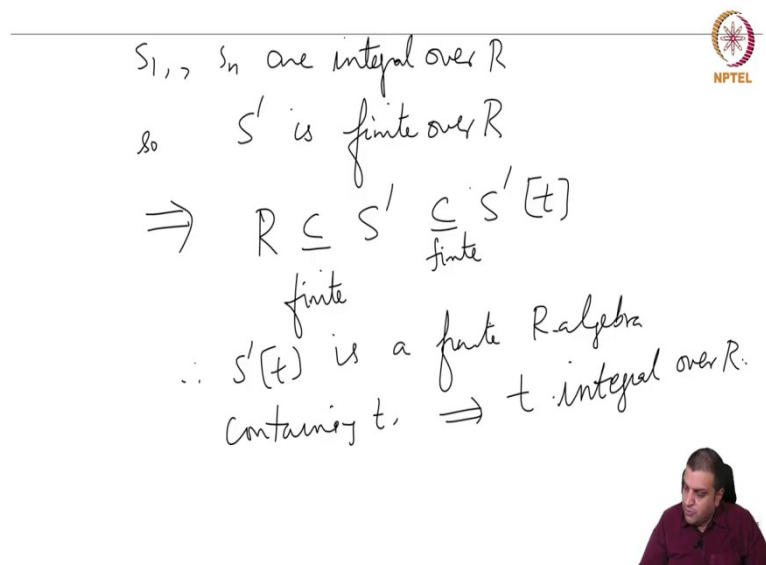 NPTEL
S1,, Sn are integral over R
so S' is finite over R
⟹ R ⊆ S' ⊆ S'[t]
finite finite
∴ S'[t] is a finite R-algebra
containing t. ⟹ t integral over R.